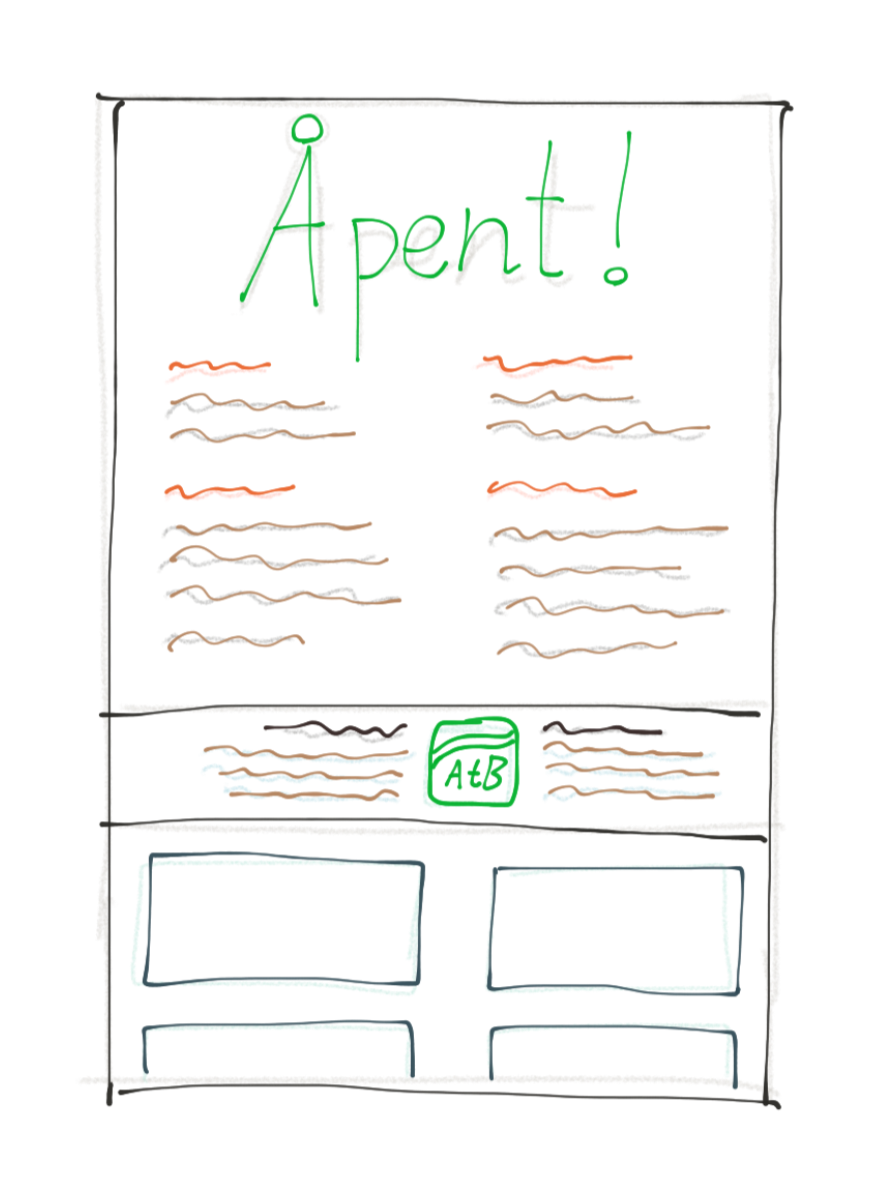 Åpent!
AtB